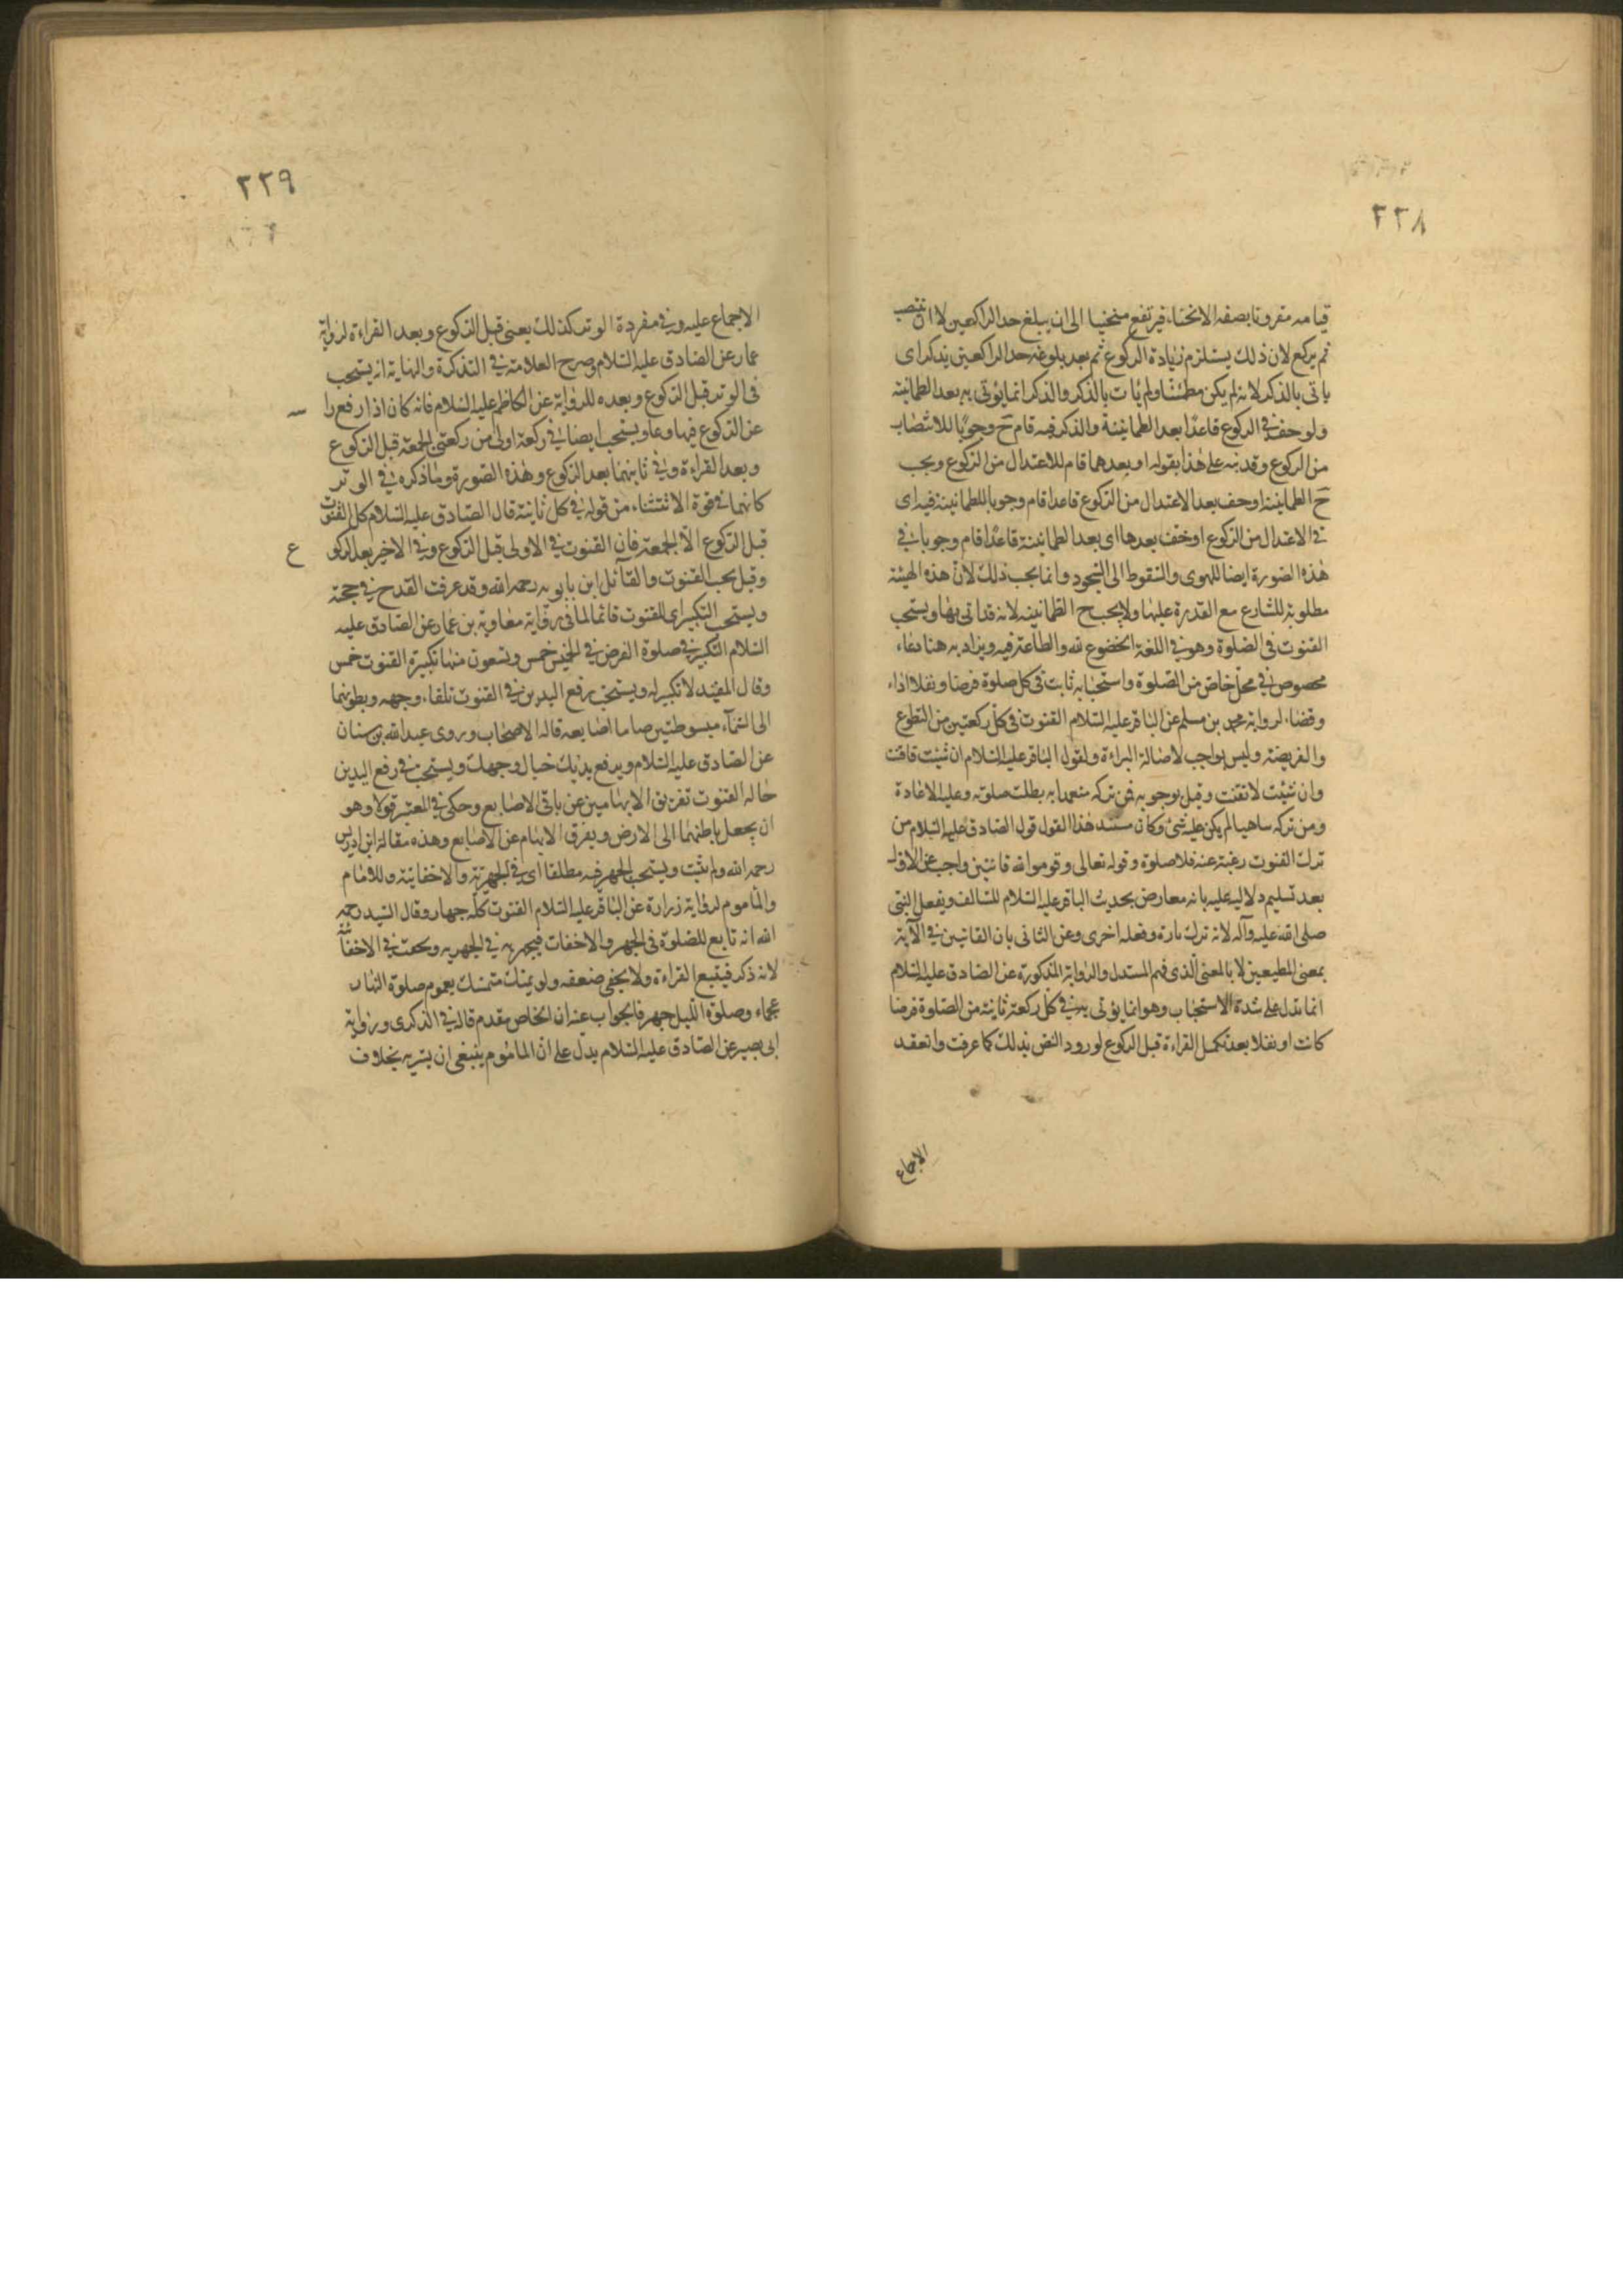 ٢٢٨
قيامه مقرونا بصفه الانحناء فيرتفع منحنيا الى ان يبلغ حد الراكعين لا ان ينتصب
ثم يركع لان ذلك يستلزم زيادة الركوع ثم بعد بلوغه حد الراكعين يذكر اى
ياتى بالذكر لانه لم يكن مطمئنا ولم يات بالذكر والذكر انما يؤتى به بعد الطمانينة
ولو خف فى الركوع قاعدا بعد الطمانينة والذكر فيه قام ح وجوبا للانتصاب
من الركوع وقد نبه على هذا بقوله او بعدهما قام للاعتدال من الركوع ويجب
ح الطمانينة او خف بعد الاعتدال من الركوع قاعدا قام وجوبا للطمانينة فيه اى
فى الاعتدال من الركوع او خف بعدها اى بعد الطمانينة قاعدا قام وجوبا فى
هذه الصورة ايضا للهوى والسقوط الى السجود وانما يجب ذلك لان هذه الهيئة
مطلوبة للشارع مع القدرة عليها ولا يجب ح الطمانينه لانه قد اتى بها ويستحب
القنوت فى الصلوة وهو فى اللغة الخضوع لله والطاعة فيه ويراد به هنا دعاء
مخصوص فى محل خاص من الصلوة واستحبابه ثابت فى كل صلوة فرضا ونفلا اداء
وقضاء لرواية محمد بن مسلم عن الباقر عليه السلام القنوت فى كل ركعتين من التطوع
والفريضة وليس بواجب لاصالة البراءة ولقول الباقر عليه السلام ان شئت فاقنت
وان شئت لا تقنت وقيل بوجوبه فمن تركه متعمدا به بطلت صلوته وعليه الاعادة
ومن تركه ساهيا لم يكن عليه شئ وكان مستند هذا القول قول الصادق عليه السلام من
ترك القنوت رغبة عنه فلا صلوة وقوله تعالى وقوموا لله قانتين واجيب عن الاول
بعد تسليم دلاليه عليه بانه معارض بحديث الباقر عليه السلام للسالف وبفعل النبى
صلى الله عليه وآله لانه ترك تارة وفعله اخرى وعن الثانى بان القانتين فى الآية
بمعنى المطيعين لا بالمعنى الذى فهم المستدل والرواية المذكورة عن الصادق عليه السلام
انما تدل على شدة الاستحباب وهو انما يؤتى به فى كل ركعة ثانية من الصلوة فرضا
كانت او نفلا بعد تكميل القراءة قبل الركوع لورود النص بذلك كما عرفت وانعقد
الاجماع
٢٢٩
الاجماع عليه وفى مفردة الوتر كذلك يعنى قبل الركوع وبعد القراءة لرواية
عمار عن الصادق عليه السلام وصرح العلامة فى التذكرة والنهاية انه يستحب
فى الوتر قبل الركوع وبعده للرواية عن الكاظم عليه السلام فانه كان اذا رفع راسه
عن الركوع فيها دعا ويستحب ايضا فى ركعة اولى من ركعتى الجمعة قبل الركوع
وبعد القراءة وفى ثانيتهما بعد الركوع وهذه الصورة وما ذكره فى الوتر
كانهما فى قوة الاستثناء من قوله فى كل ثانية قال الصادق عليه السلام كل القنوت
قبل الركوع الا الجمعة فان القنوت فى الاولى قبل الركوع وفى الاخير بعد الركوع
وقيل يجب القنوت والقائل ابن بابويه رحمه الله وقد عرفت القدح فى حجته
ويستحب التكبير اى للقنوت قائما لما فى رواية معاوية بن عمار عن الصادق عليه
السلام التكبير فى صلوة الفرض فى الخمس خمس وتسعون منها تكبيرة القنوت خمس
وقال المفيد لا تكبير له ويستحب رفع اليدين فى القنوت تلقاء وجهه وبطونهما
الى السماء مبسوطتين ضاما اصابعه قاله الاصحاب وروى عبد الله بن سنان
عن الصادق عليه السلام ويرفع يديك حيال وجهك ويستحب فى رفع اليدين
حاله القنوت تفريق الابهامين عن باقى الاصابع وحكى فى المعتبر قولا وهو
ان يجعل باطنهما الى الارض ويفرق الابهام عن الاصابع وهذه مقالة ابن ادريس
رحمه الله ولم يثبت ويستحب الجهر فيه مطلقا اى فى الجهرية والاخفاتية وللامام
والماموم لرواية زرارة عن الباقر عليه السلام القنوت كله جهار وقال السيد رحمه
الله انه تابع للصلوة فى الجهر والاخفات فيجهر به فى الجهريه ويخفت فى الاخفاتية
لانه ذكر فيتبع القراءة ولا يخفى ضعفه ولو تمسك متمسك بعموم صلوة النهار
عجماء وصلوة الليل جهر فالجواب عنه ان الخاص مقدم قاله فى الذكرى ورواية
ابى بصير عن الصادق عليه السلام يدل على ان الماموم ينبغى ان يسر به بخلاف